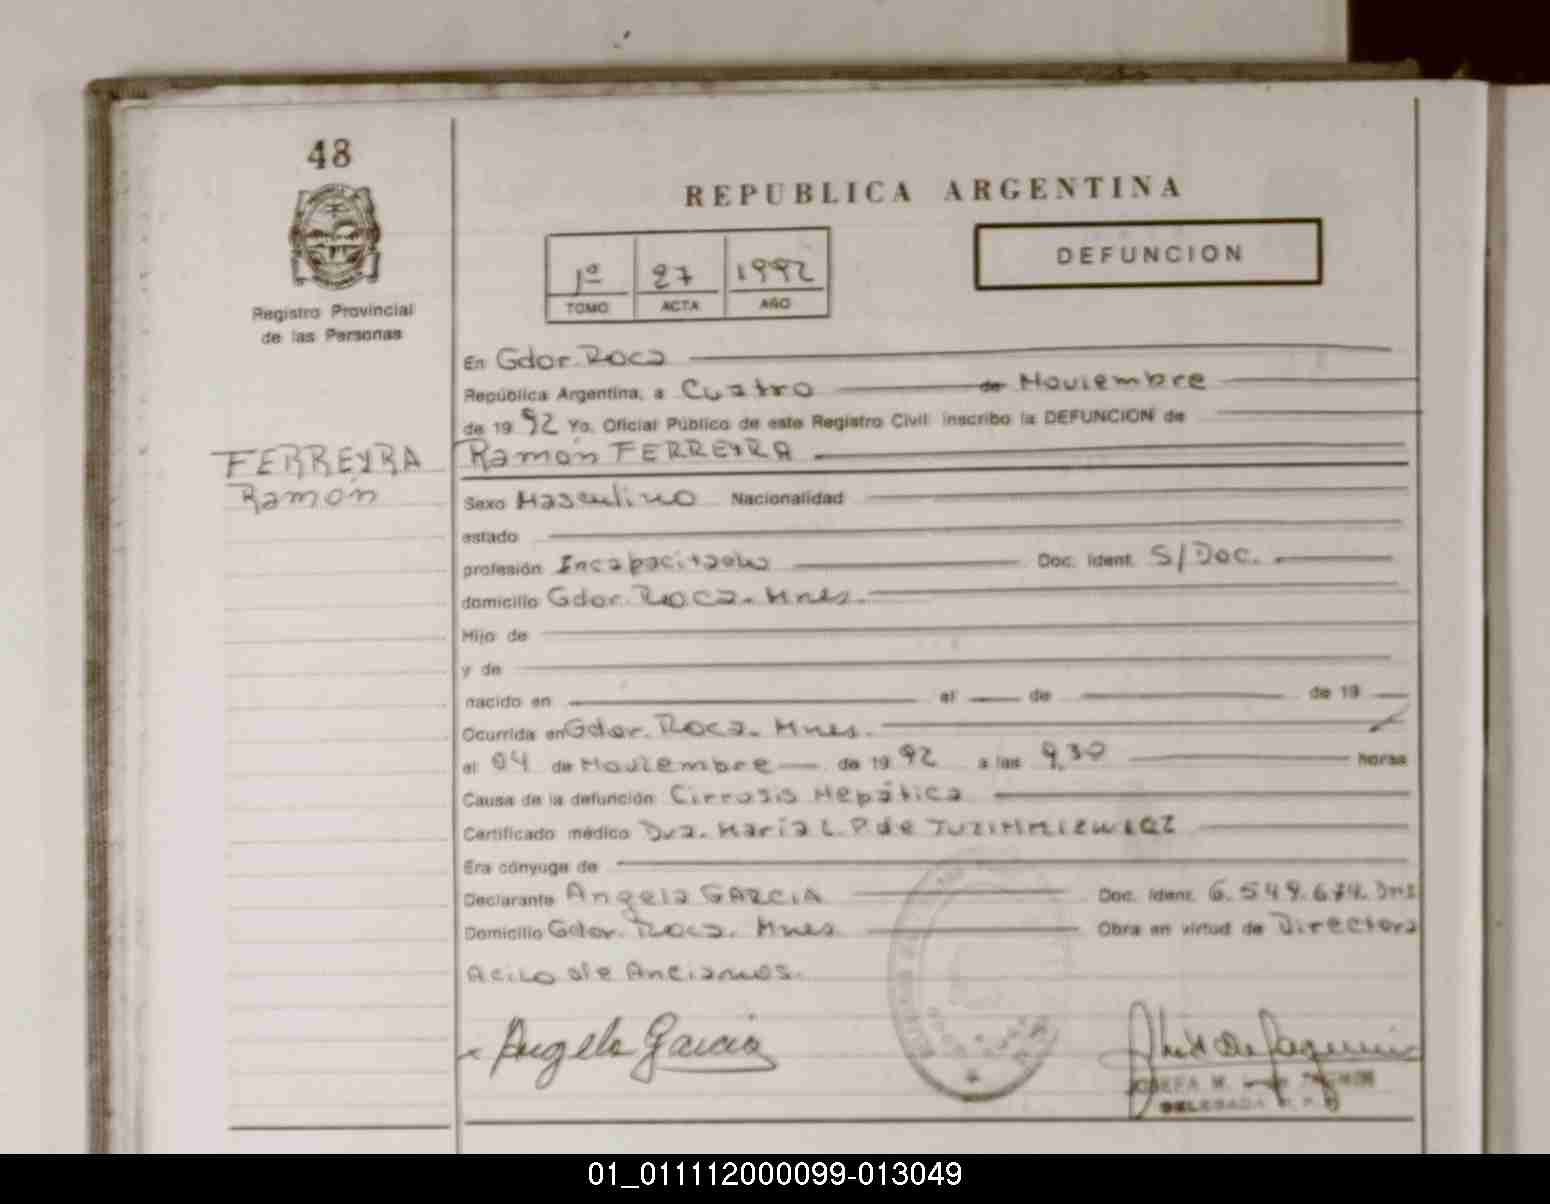 48
REPUBLICA ARGENTINA
DEFUNCION
1º 27 1992
TOMO ACTA AÑO
Registro Provincial
de las Personas
En Gdor. Roca
República Argentina, a Cuatro de Noviembre
de 1992 Yo. Oficial Público de este Registro Civil inscribo la DEFUNCION de
FERREYRA
Ramón
Ramón FERREYRA
Sexo Masculino Nacionalidad
estado
profesión Incapacitado Doc. Ident. S/Doc.
domicilio Gdor. Roca. Mnes.
Hijo de
y de
nacido en el de de 19
Ocurrida en Gdor. Roca. Mnes.
el 04 de Noviembre de 1992 a las 9,30 horas
Causa de la defunción Cirrosis Hepática
Certificado médico Dra. María L. P. de
Era cónyuge de
Declarante Angela GARCIA Doc. Ident.
Domicilio Gdor. Roca. Mnes Obra en virtud de Directora
Acilo de Ancianos.
Angela Garcia
DELEGADA
01_011112000099-013049